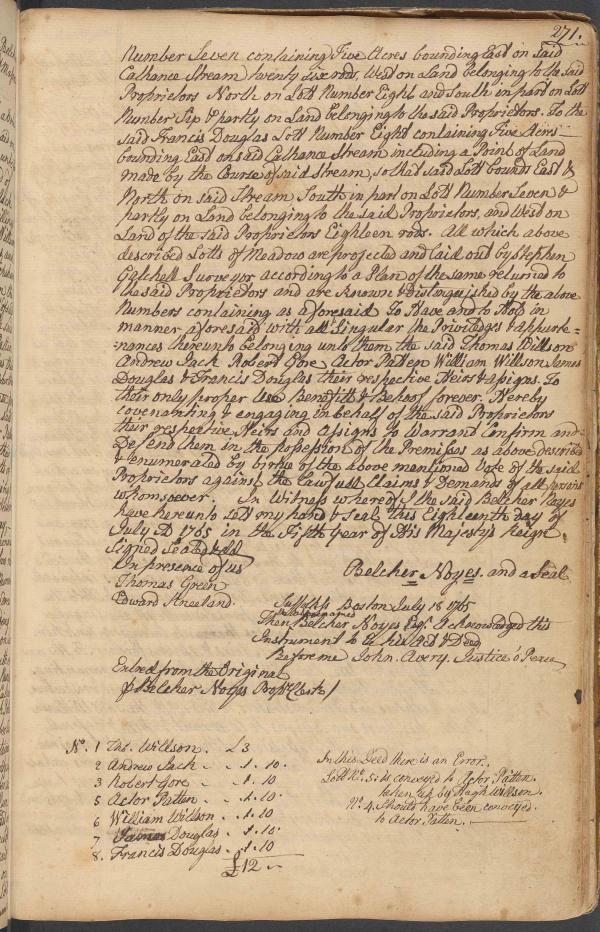 271.
Number Seven containing Five Acres bounding East on said
Cathance Stream twenty six rods, West on Land belonging to the said
Proprietors North on Lott Number Eight and South in part on Lott
Number Six & partly on Land belonging to the said Proprietors. To the
said Francis Douglas Lott Number Eight containing Five Acres
bounding East on said Cathance Stream including a Point of Land
made by the Course of said Stream, so that said Lott bounds East &
North on said Stream South in part on Lott Number Seven &
partly on Land belonging to the said Proprietors, and West on
Land of the said Proprietors Eighteen rods. All which above
described Lotts of Meadow are projected and laid out by Stephen
Getchell Surveyor according to a Plan of the same returned to
the said Proprietors and are known & distinguished by the above
Numbers containing as aforesaid To Have and to Hold in
manner aforesaid with all & Singular the Priviledges & appurte=
=nances thereunto belonging unto them the said Thomas Willson
Andrew Jack Robert Gore Actor Patten William Willson James
Douglas & Francis Douglas their respective Heirs & assigns. To
their only proper Use Benefitt & Behoof forever. Hereby
covenanting & engaging in behalf of the said Proprietors
their respective Heirs and Assigns to Warrand Confirm and
Defend them in the possession of the Premises as above described
& enumerated by virtue of the above mentioned Vote of the said
Proprietors against the Lawfull Claims & Demands of all persons
whomsoever. In Witness whereof I the said Belcher Noyes
have hereunto sett my hand & Seal this Eighteenth day of
July AD 1765 in the Fifth year of His Majestys Reign.
Signed Sealed & dd
In presence of us
Belcher Noyes. and a Seal
Thomas Green
Edward Kneeland.
Suffolk ss Boston July 18 1765
Then Belcher Noyes Esqr. Acknowledged this
Instrument to be his Act & Deed
Before me John Avery Justice o Peace
Entred from the Original
p Belcher Noyes Propr Clerk /
No. 1 Tho. Willson. £3
2 Andrew Jack - - 1.10.
3 Robert Gore - - 1.10
5 Actor Patten - - 1.10.
6 William Willson - - 1.10.
7 James Douglas - 1.10.
8. Francis Douglas - 1.10
£12 -
In this Deed there is an Error.
Lott No. 5. is conveyed to Actor Patten.
taken up by Hugh Willson.
No. 4. Should have been conveyed
to Actor Patten.